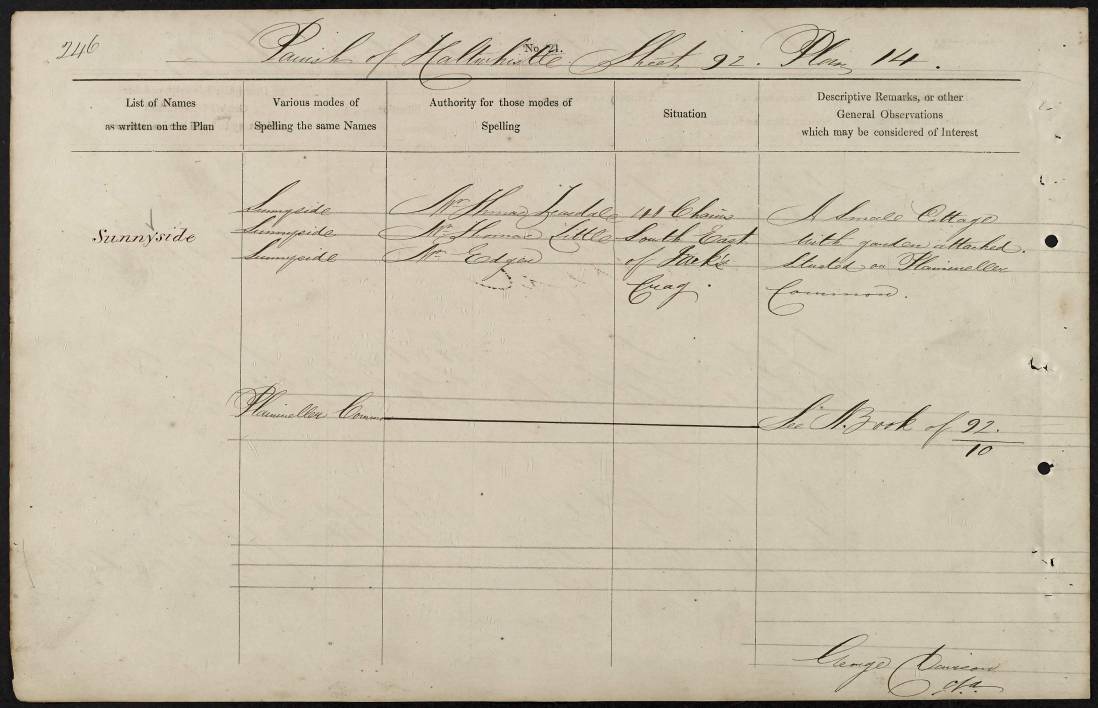 246
Parish of Haltwhistle No 21. Sheet 92. Plan 14.
List of Names
as written on the Plan
Various modes of
Spelling the same Names
Authority for those modes of
Spelling
Situation
Descriptive Remarks, or other
General Observations
which may be considered of Interest
Sunnyside
Sunnyside
Sunnyside
Sunnyside
Mr Thomas Teasdale
Mr Thomas Little
Mr Edger
Chains
South East
of Jack's
Crag.
A small Cottage
with garden attached.
Situated on Plainmeller
Common.
Plainmeller Common
See N. Book of 92.
10
George Davison